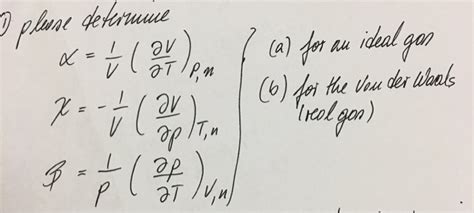 1) please determine
α = 1/V (∂V/∂T)P,n
χ = - 1/V (∂V/∂p)T,n
β = 1/p (∂p/∂T)V,n
(a) for an ideal gas
(b) for the Van der Waals
(real gas)